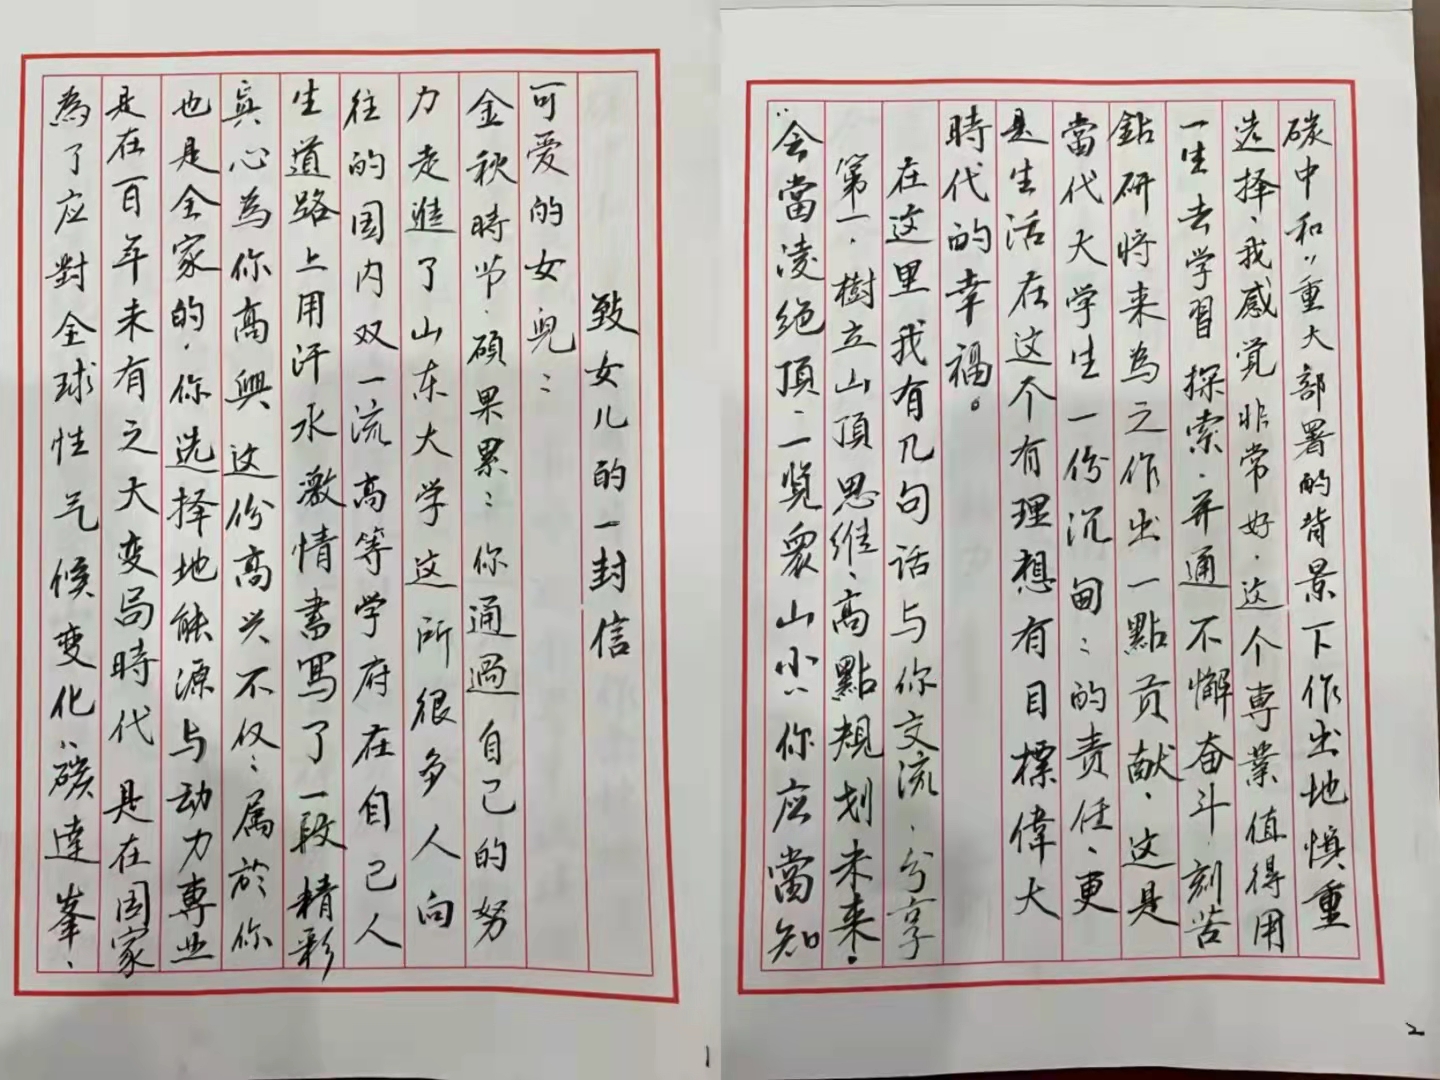 致女儿的一封信
可爱的女兒：
金秋時节，碩果累累：你通過自己的努
力走進了山东大学这所很多人向
往的国内双一流高等学府在自己人
生道路上用汗水激情書寫了一段精彩
真心為你高興这份高兴不仅：属於你
也是全家的，你选择地能源与动力専业
是在百年未有之大变局時代是在国家
為了应對全球性气候变化“碳達峯、
1
碳中和”重大部署的背景下作出地慎重
选择，我感觉非常好，这个専業值得用
一生去学習探索，并通不懈奋斗刻苦
鉆研将来為之作出一點贡献，这是
當代大学生一份沉甸：的责任，更
是生活在这个有理想有目標偉大
時代的幸福。
在这里我有几句话与你交流，分享
第一，樹立山頂思维，高點規划未来。
会當凌绝頂，一览衆山小你应當知
2